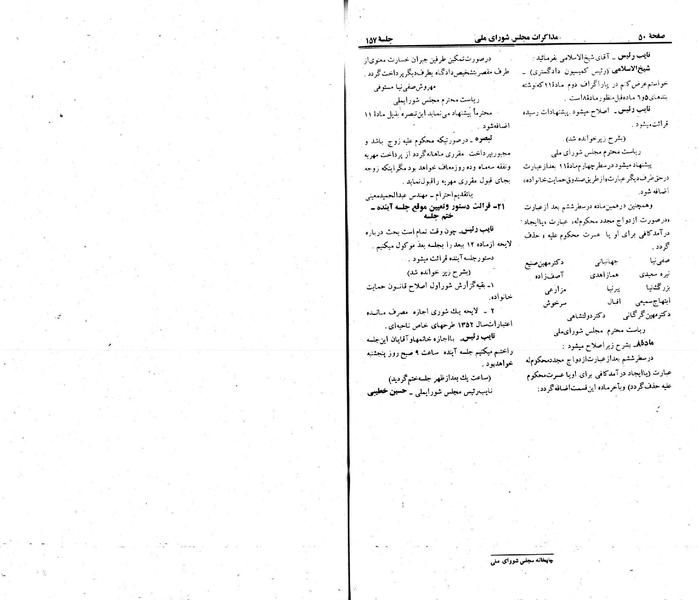 صفحهٔ ۵۰
مذاکرات مجلس شورای ملی
جلسهٔ ۱۵۷
نایب رئیس ـ آقای شیخ‌الاسلامی بفرمائید.
شیخ‌الاسلامی (رئیس کمیسیون دادگستری) ـ
خواستم عرض کنم در پاراگراف دوم مادهٔ ۱۱ که نوشته
بندهای ۵ و ۶ ماده قبل منظور مادهٔ ۸ است.
نایب رئیس ـ اصلاح میشود. پیشنهادات رسیده
قرائت میشود.
(بشرح زیر خوانده شد)
ریاست محترم مجلس شورای ملی
پیشنهاد میشود در سطر چهارم مادهٔ ۱۱ بعد از عبارت
در حق طرف دیگر عبارت «از طریق صندوق حمایت خانواده»
اضافه شود.
و همچنین در همین ماده در سطر ششم بعد از عبارت
«در صورت ازدواج مجدد محکوم‌له» عبارت «یا ایجاد
درآمد کافی برای او یا عسرت محکوم علیه» حذف
گردد.
صفی‌نیا جهانبانی دکتر مهین صنیع
نیره سعیدی هما زاهدی آصف‌زاده
بزرگ‌نیا پیرنیا مزارعی
ابتهاج سمیعی اقبال سرخوش
دکتر مهین گرگانی دکتر دولتشاهی
ریاست محترم مجلس شورای ملی
ماده ۸ـ بشرح زیر اصلاح میشود :
در سطر ششم بعد از عبارت ازدواج مجدد محکوم‌له
عبارت (یا ایجاد درآمد کافی برای او یا عسرت محکوم
علیه حذف گردد) و بآخر ماده این قسمت اضافه گردد :
در صورت تمکین طرفین جبران خسارت معنوی از
طرف مقصر بتشخیص دادگاه بطرف دیگر پرداخت گردد.
مهروش صفی‌نیا مستوفی
ریاست محترم مجلس شورایملی
محترماً پیشنهاد می‌نماید این تبصره بذیل مادهٔ ۱۱
اضافه شود.
تبصره ـ در صورتیکه محکوم علیه زوج باشد و
مجبور بپرداخت مقرری ماهانه گردد از پرداخت مهریه
و نفقه سه ماه و ده روز معاف خواهد بود مگر اینکه زوجه
بجای قبول مقرری مهریه را قبول نماید.
با تقدیم احترام ـ مهندس عبدالحمید معینی
۲۱ـ قرائت دستور و تعیین موقع جلسه آینده ـ
ختم جلسه
نایب رئیس ـ چون وقت تمام است بحث درباره
لایحه از ماده ۱۲ ببعد را بجلسه بعد موکول میکنیم.
دستور جلسه آینده قرائت میشود.
(بشرح زیر خوانده شد)
۱ـ بقیه گزارش شور اول اصلاح قانون حمایت
خانواده.
۲ ـ لایحه یک شوری اجازه مصرف مانده
اعتبارات سال ۱۳۵۲ طرحهای خاص ناحیه‌ای.
نایب رئیس ـ با اجازه خانمها و آقایان این جلسه
را ختم میکنیم جلسه آینده ساعت ۹ صبح روز پنجشنبه
خواهد بود.
(ساعت یک بعد از ظهر جلسه ختم گردید)
نایب رئیس مجلس شورایملی ـ حسین خطیبی
چاپخانه مجلس شورای ملی